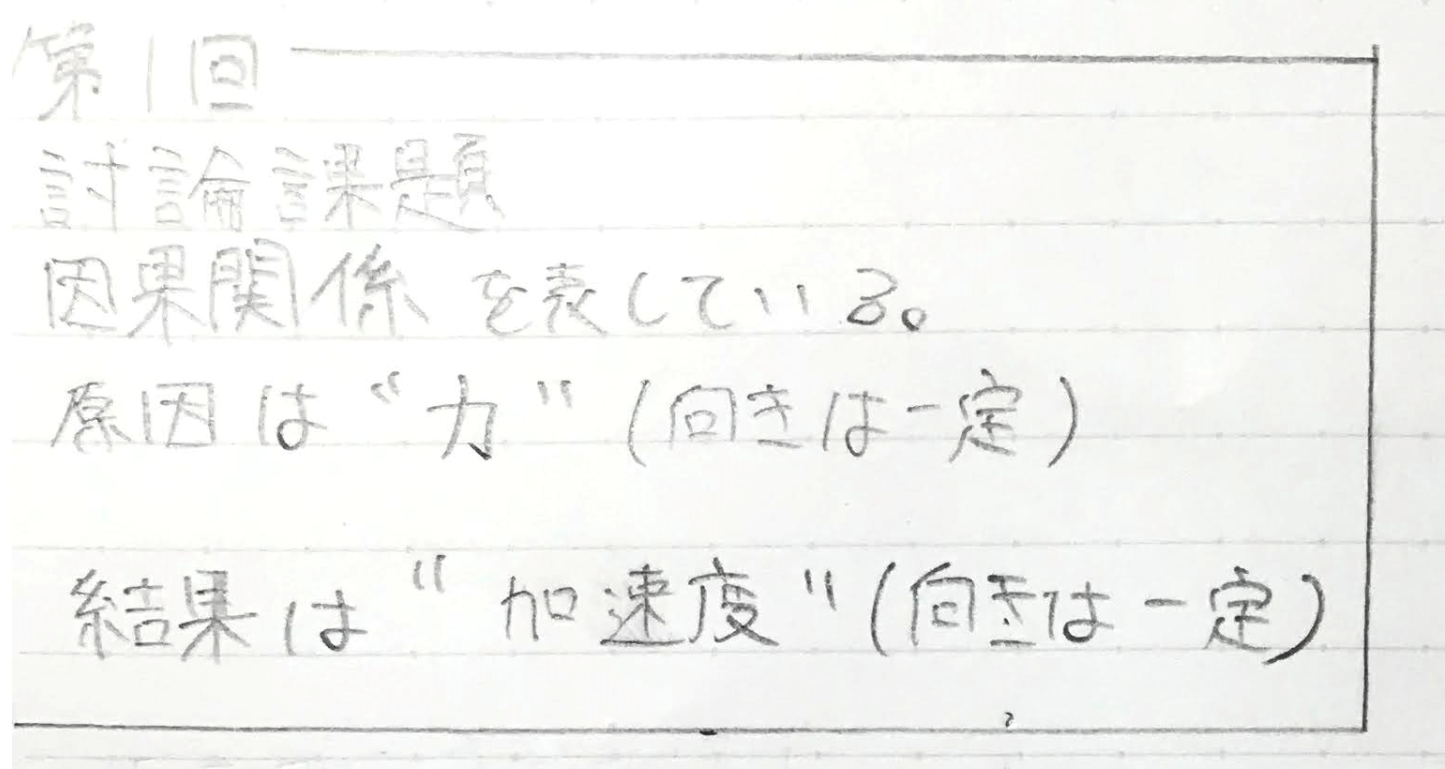 第1回
討論課題
因果関係を表している。
原因は“力”(向きは一定)
結果は“加速度”(向きは一定)